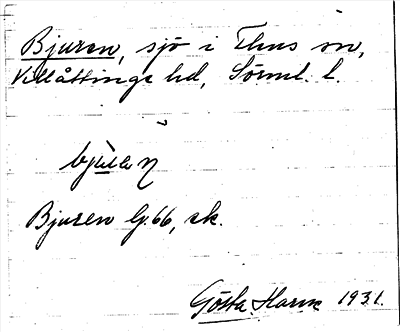 Bjuren, sjö i Flens sn,
Villåttinge hd, Sörml. l.
Bjuren G.66, sk.
Gösta Harın 1931.